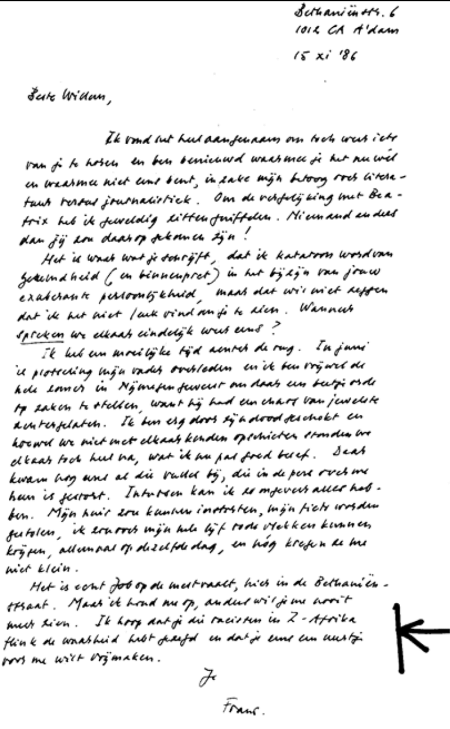 Bethaniënstr. 6
1012 CR A'dam
15 xi '86
Beste Willem,
Ik vond het heel aangenaam om toch weer iets
van je te horen en ben benieuwd waarmee je het nu wél
en waarmee niet eens bent, inzake mijn betoog over litera-
tuur versus journalistiek. Om de vergelijking met Bea-
trix heb ik geweldig zitten gniffelen. Niemand anders
dan jij zou daarop gekomen zijn!
Het is waar wat je schrijft, dat ik katatoon word van
(en binnenpret) in het bijzijn van jouw
exuberante persoonlijkheid, maar dat wil niet zeggen
dat ik het niet leuk vind om je te zien. Wanneer
spreken we elkaar eindelijk weer eens?
Ik heb een moeilijke tijd achter de rug. In juni
is plotseling mijn vader overleden en ik ben vrijwel de
hele zomer in Nijmegen geweest om daar een beetje orde
op zaken te stellen, want hij had een chaos van jewelste
achtergelaten. Ik ben erg door zijn dood geschokt en
hoewel we niet met elkaar konden opschieten stonden we
elkaar toch heel na, wat ik nu pas goed besef. Daar
kwam nog eens al die vuiligheid bij, die in de pers over me
heen is gestort. Intussen kan ik zo ongeveer alles heb-
ben. Mijn huis zou kunnen instorten, mijn fiets worden
gestolen, ik zou over mijn hele lijf rode vlekken kunnen
krijgen, allemaal op dezelfde dag, en nóg kregen ze me
niet klein.
Het is echt Job op de mestvaalt, hier in de Bethaniën-
straat. Maar ik houd me op, anders wil je me nooit
meer zien. Ik hoop dat je die racisten in Z-Afrika
flink de waarheid hebt gezegd en dat je eens een uurtje
voor me wilt vrijmaken.
Je
Frans.